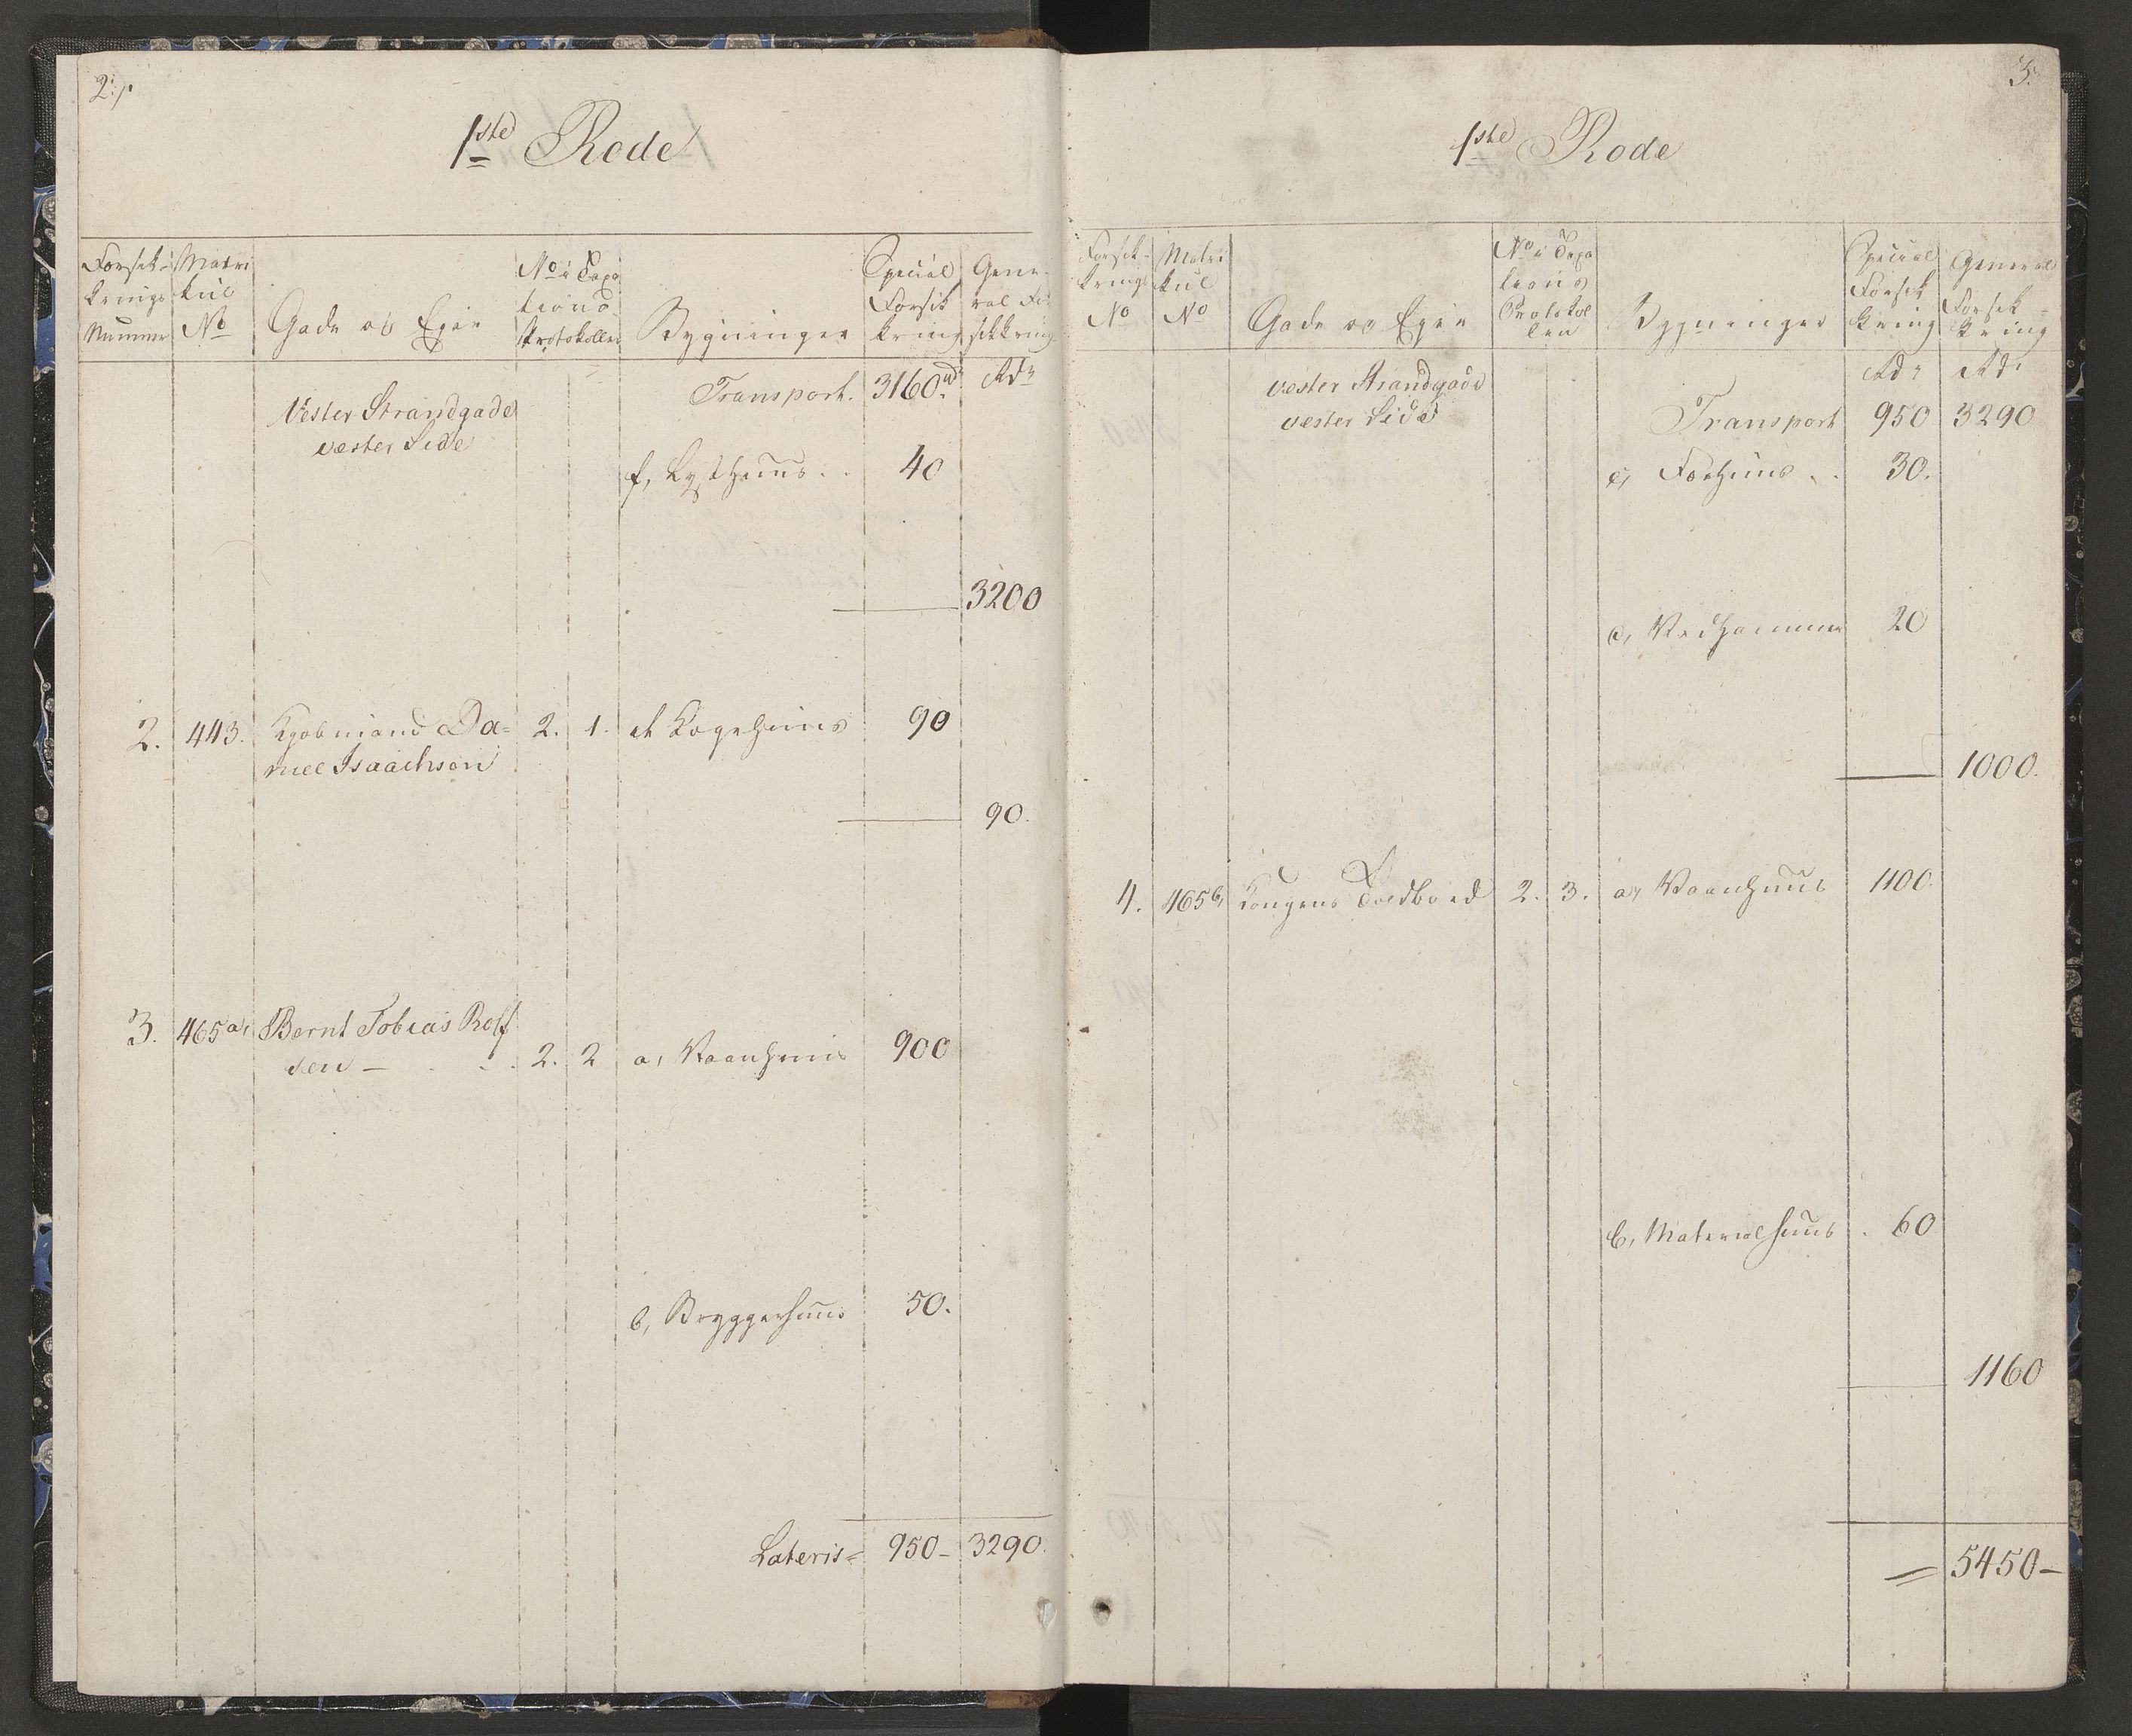 2./.
1ste Rode
Forsik-
krings
Nummer
Matri
kul
No
Gade og Eger
No i Taxa
tions
Protokollen
Bygninger
Special
Forsik
kring
Gene-
ral For
sikkring
Vester Strandgade
vester Side
Transport. 3160 rd Rdr
f, Lysthuus . . 40
3200
2. 443. Kjøbmand Da-
niel Isaachsen
2. 1. et Kogehuus 90
90.
3. 465 a, Bernt Tobias Rolf
sen — . . . 2. 2 a, Vaanhuus 900
b, Bryggerhuus 50.
Lateris = 950 - 3290.
3.
1ste Rode
Forsik-
krings
No
Matri
kul
No
Gade og Eger
No i Taxa
tions
Protokol
len
Bygninger
Special
Forsik
kring
General
Forsik-
kring
vester Strandgade
vester Side
Rdr Rdr
Transport 950 3290
c, Førhuus . . 30.
d, Vedhammer 20
1000.
4. 465 b, Kongens Toldbod 2. 3. a, Vaanhuus 1100.
b, Materialhuus . 60
1160
= 5450 —